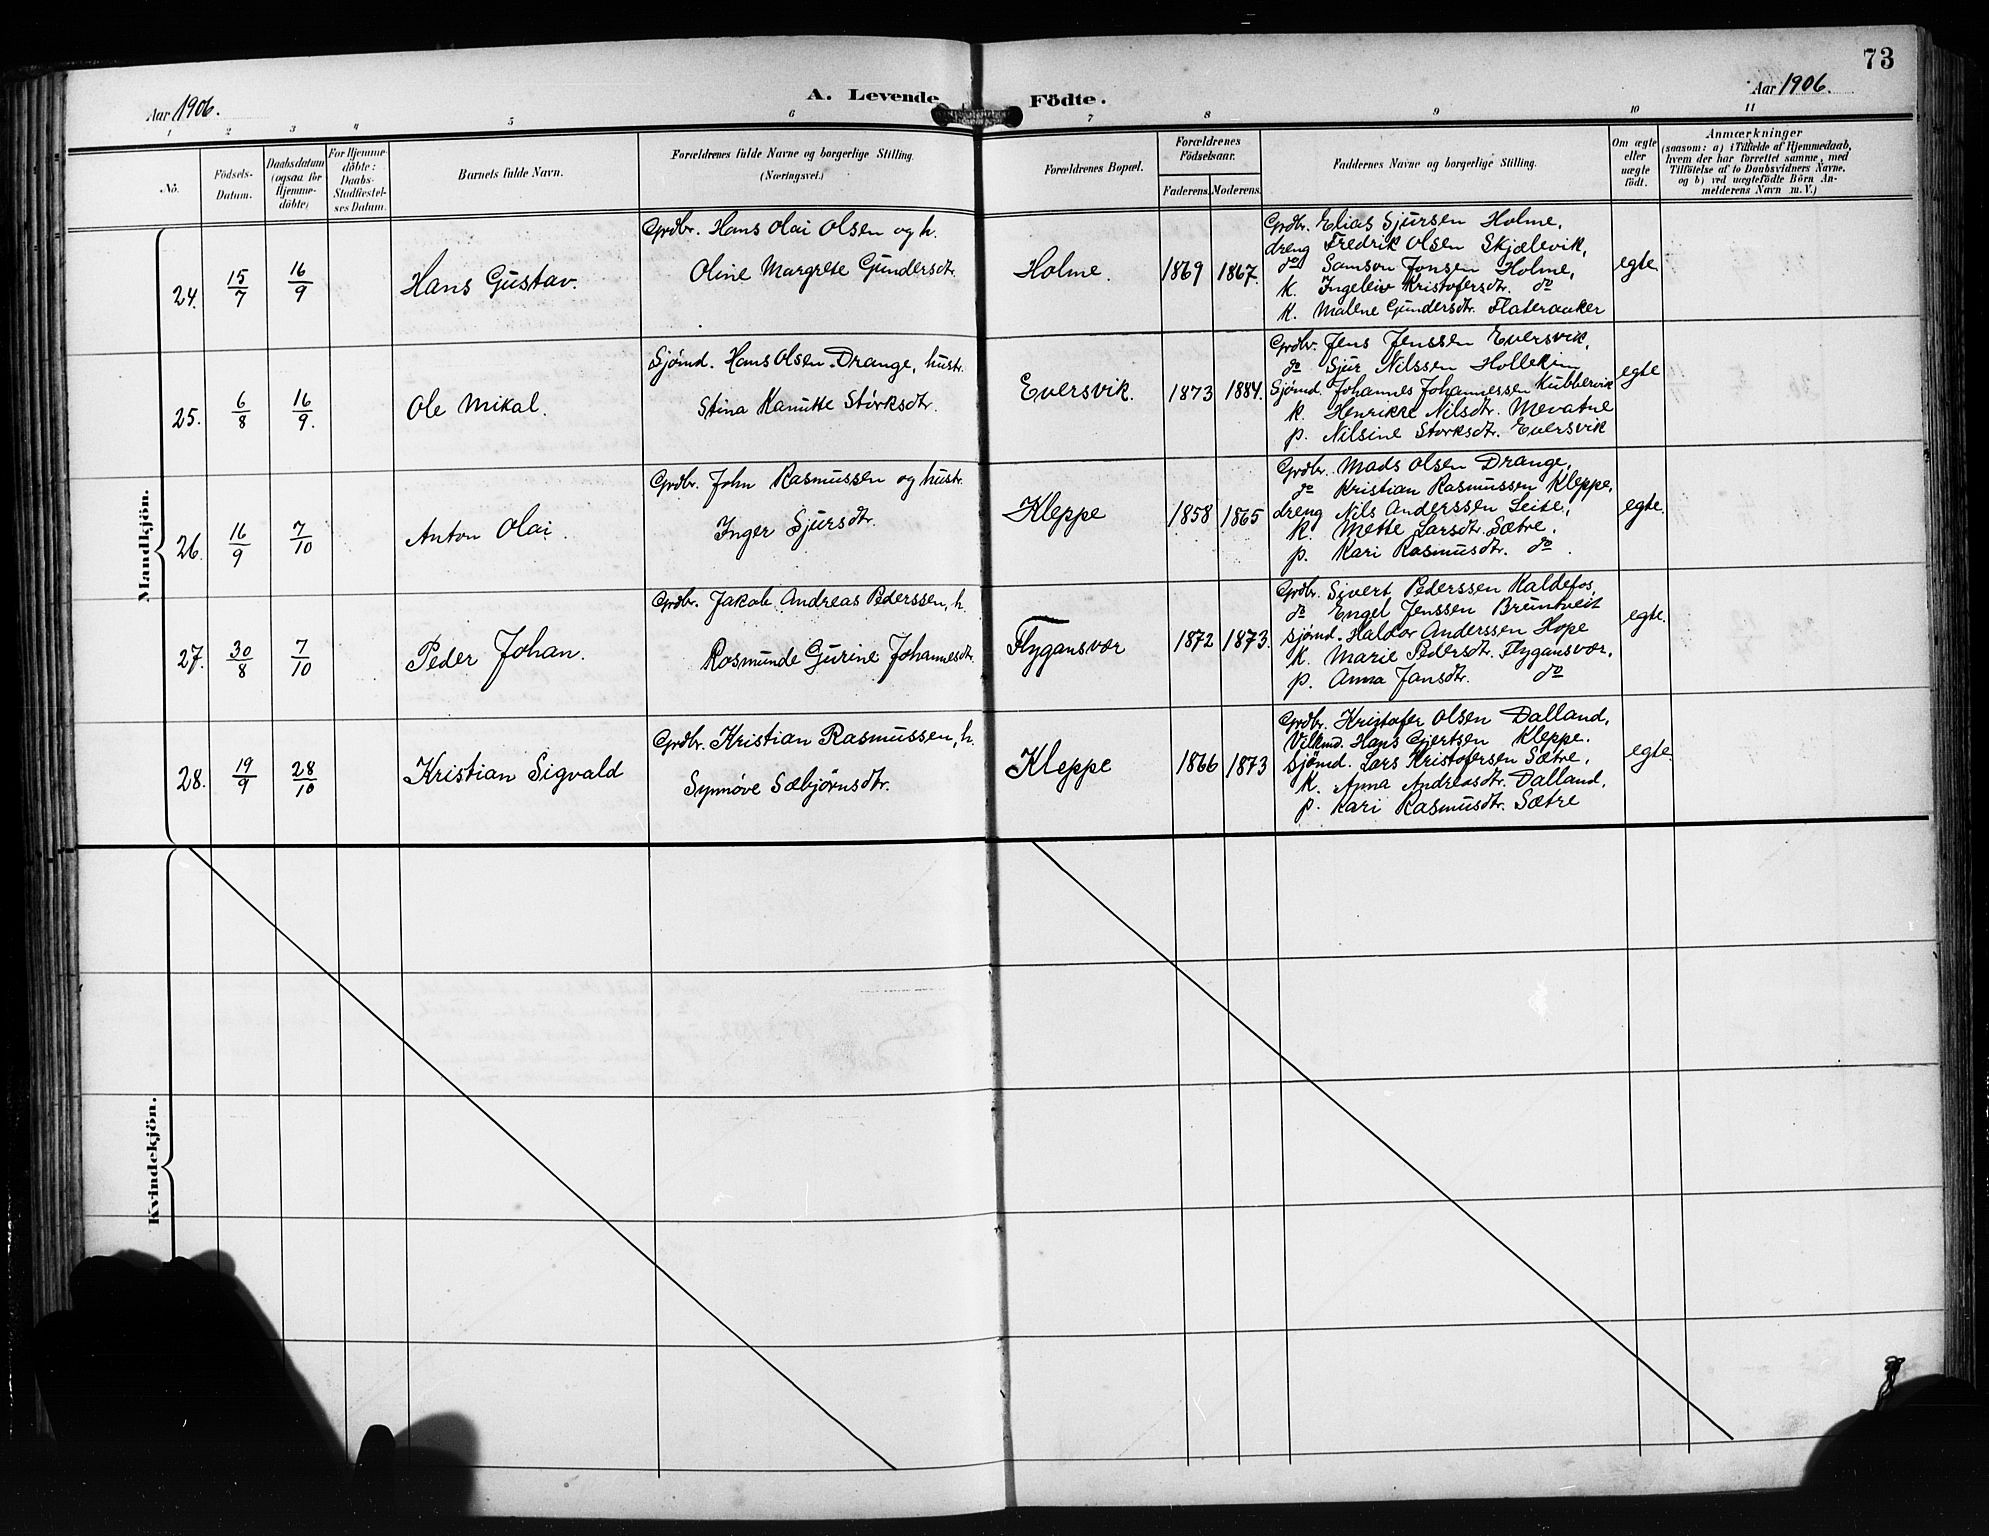 73
Aar 1906.
A. Levende Födte.
Aar 1906.
1 2 3 4 5 6 7 8 9 10 11
No.
Födsels-
Datum.
Daabsdatum
(ogsaa för
Hjemme-
döbte)
For Hjemme-
döbte:
Daabs-
Stadfæstel-
ses Datum.
Barnets fulde Navn.
Forældrenes fulde Navne og borgerlige Stilling.
(Næringsvei.)
Forældrenes Bopæl.
Forældrenes
Födselsaar.
Faderens. Moderens.
Faddernes Navne og borgerlige Stilling.
Om ægte
eller
uægte
födt.
Anmærkninger
(saasom: a) i Tilfælde af Hjemmedaab,
hvem der har forrettet samme, med
Tilföielse af to Daabsvidners Navne,
og b) ved uægtefödte Börn An-
melderens Navn m. V.)
Mandkjön.
24. 15/7 16/9 Hans Gustav.
Grdbr. Hans Olai Olsen og h.
Oline Margrete Gundersdtr.
Holme. 1869 1867.
Grdbr. Elias Sjursen Holme,
dreng Fredrik Olsen Skjælevik,
do Samson Jonsen Holme,
K. Ingeleiv Kristofersdtr. do
K. Malene Gundersdtr. Flateraaker
egte.
25. 6/8 16/9. Ole Mikal.
Sjømd. Hans Olsen Drange, hustr.
Stina Kanutte Størksdtr.
Eversvik. 1873 1884.
Grdbr. Jens Jenssen Eversvik,
do Sjur Nilssen Hollekim
Sjømd. Johannes Johannessen Kubbervik
k. Henrikke Nilsdtr. Mevatne
p. Nilsine Størksdtr. Eversvik
egte
26. 16/9 7/10 Anton Olai.
Grdbr. John Rasmussen og hustr.
Inger Sjursdtr.
Kleppe 1858 1865
Grdbr. Mads Olsen Drange,
do Kristian Rasmussen Kleppe,
dreng Nils Anderssen Leite,
K. Mette Larsdtr. Sætre.
p. Kari Rasmusdtr. do.
egte.
27. 30/8 7/10 Peder Johan.
Grdbr. Jakob Andreas Pederssen, h.
Rasmunde Gurine Johannesdtr.
Flygansvær 1872 1873.
Grdbr. Sivert Pederssen Kaldefos,
do Engel Jenssen Bruntveit
Sjømd. Haldor Anderssen Hope
K. Marie Pedersdtr. Flygansvær,
p. Anna Jansdtr. do
egte.
28. 19/9 28/10 Kristian Sigvald
Grdbr. Kristian Rasmussen, h.
Synnøve Sæbjørnsdtr.
Kleppe 1866 1873
Grdbr. Kristofer Olsen Dalland,
Hans Gjertsen Kleppe.
Sjømd. Lars Kristofersen Sætre,
K. Anna Andreasdtr. Dalland,
p. Kari Rasmusdtr. Sætre
egte.
Kvindekjön.